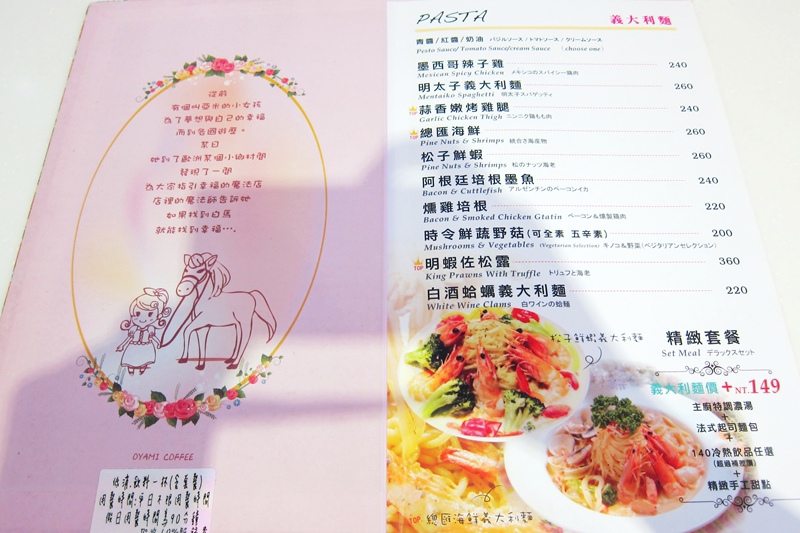 從前
有個叫亞米的小女孩
為了夢想與自己的幸福
而到各國遊歷。
某日
她到了歐洲某個小鄉村間
發現了一間
為大家指引幸福的魔法店
店裡的魔法師告訴她
如果找到白馬
就能找到幸福…。
OYAMI COFFEE
低消飲料一杯(含套餐)
用餐時間:平日不限用餐時間
假日用餐時間為90分鐘
PASTA 義大利麵
青醬/紅醬/奶油 バジルソース/トマトソース/クリームソース
Pesto Sauce/Tomato Sauce/cream Sauce (choose one)
墨西哥辣子雞 240
Mexican Spicy Chicken メキシコのスパイシー鶏肉
明太子義大利麵 260
Mentaiko Spaghetti 明太子スパゲッティ
TOP 蒜香嫩烤雞腿 240
Garlic Chicken Thigh ニンニク鶏もも肉
TOP 總匯海鮮 260
Pine Nuts & Shrimps 統合さ海産物
松子鮮蝦 260
Pine Nuts & Shrimps 松のナッツ海老
阿根廷培根墨魚 240
Bacon & Cuttlefish アルゼンチンのベーコンイカ
燻雞培根 220
Bacon & Smoked Chicken Gtatin ベーコン&燻製鶏肉
時令鮮蔬野菇(可全素 五辛素) 200
Mushrooms & Vegetables (Vegetarian Selection) キノコ&野菜(ベジタリアンセレクション)
TOP 明蝦佐松露 360
King Prawns With Truffle トリュフと海老
白酒蛤蠣義大利麵 220
White Wine Clams 白ワインの蛤蠣
松子鮮蝦義大利麵
精緻套餐
Set Meal デラックスセット
義大利麵價+NT.149
主廚特調濃湯
+
法式起司麵包
+
140冷熱飲品任選
(超過補差價)
+
精緻手工甜點
TOP 總匯海鮮義大利麵